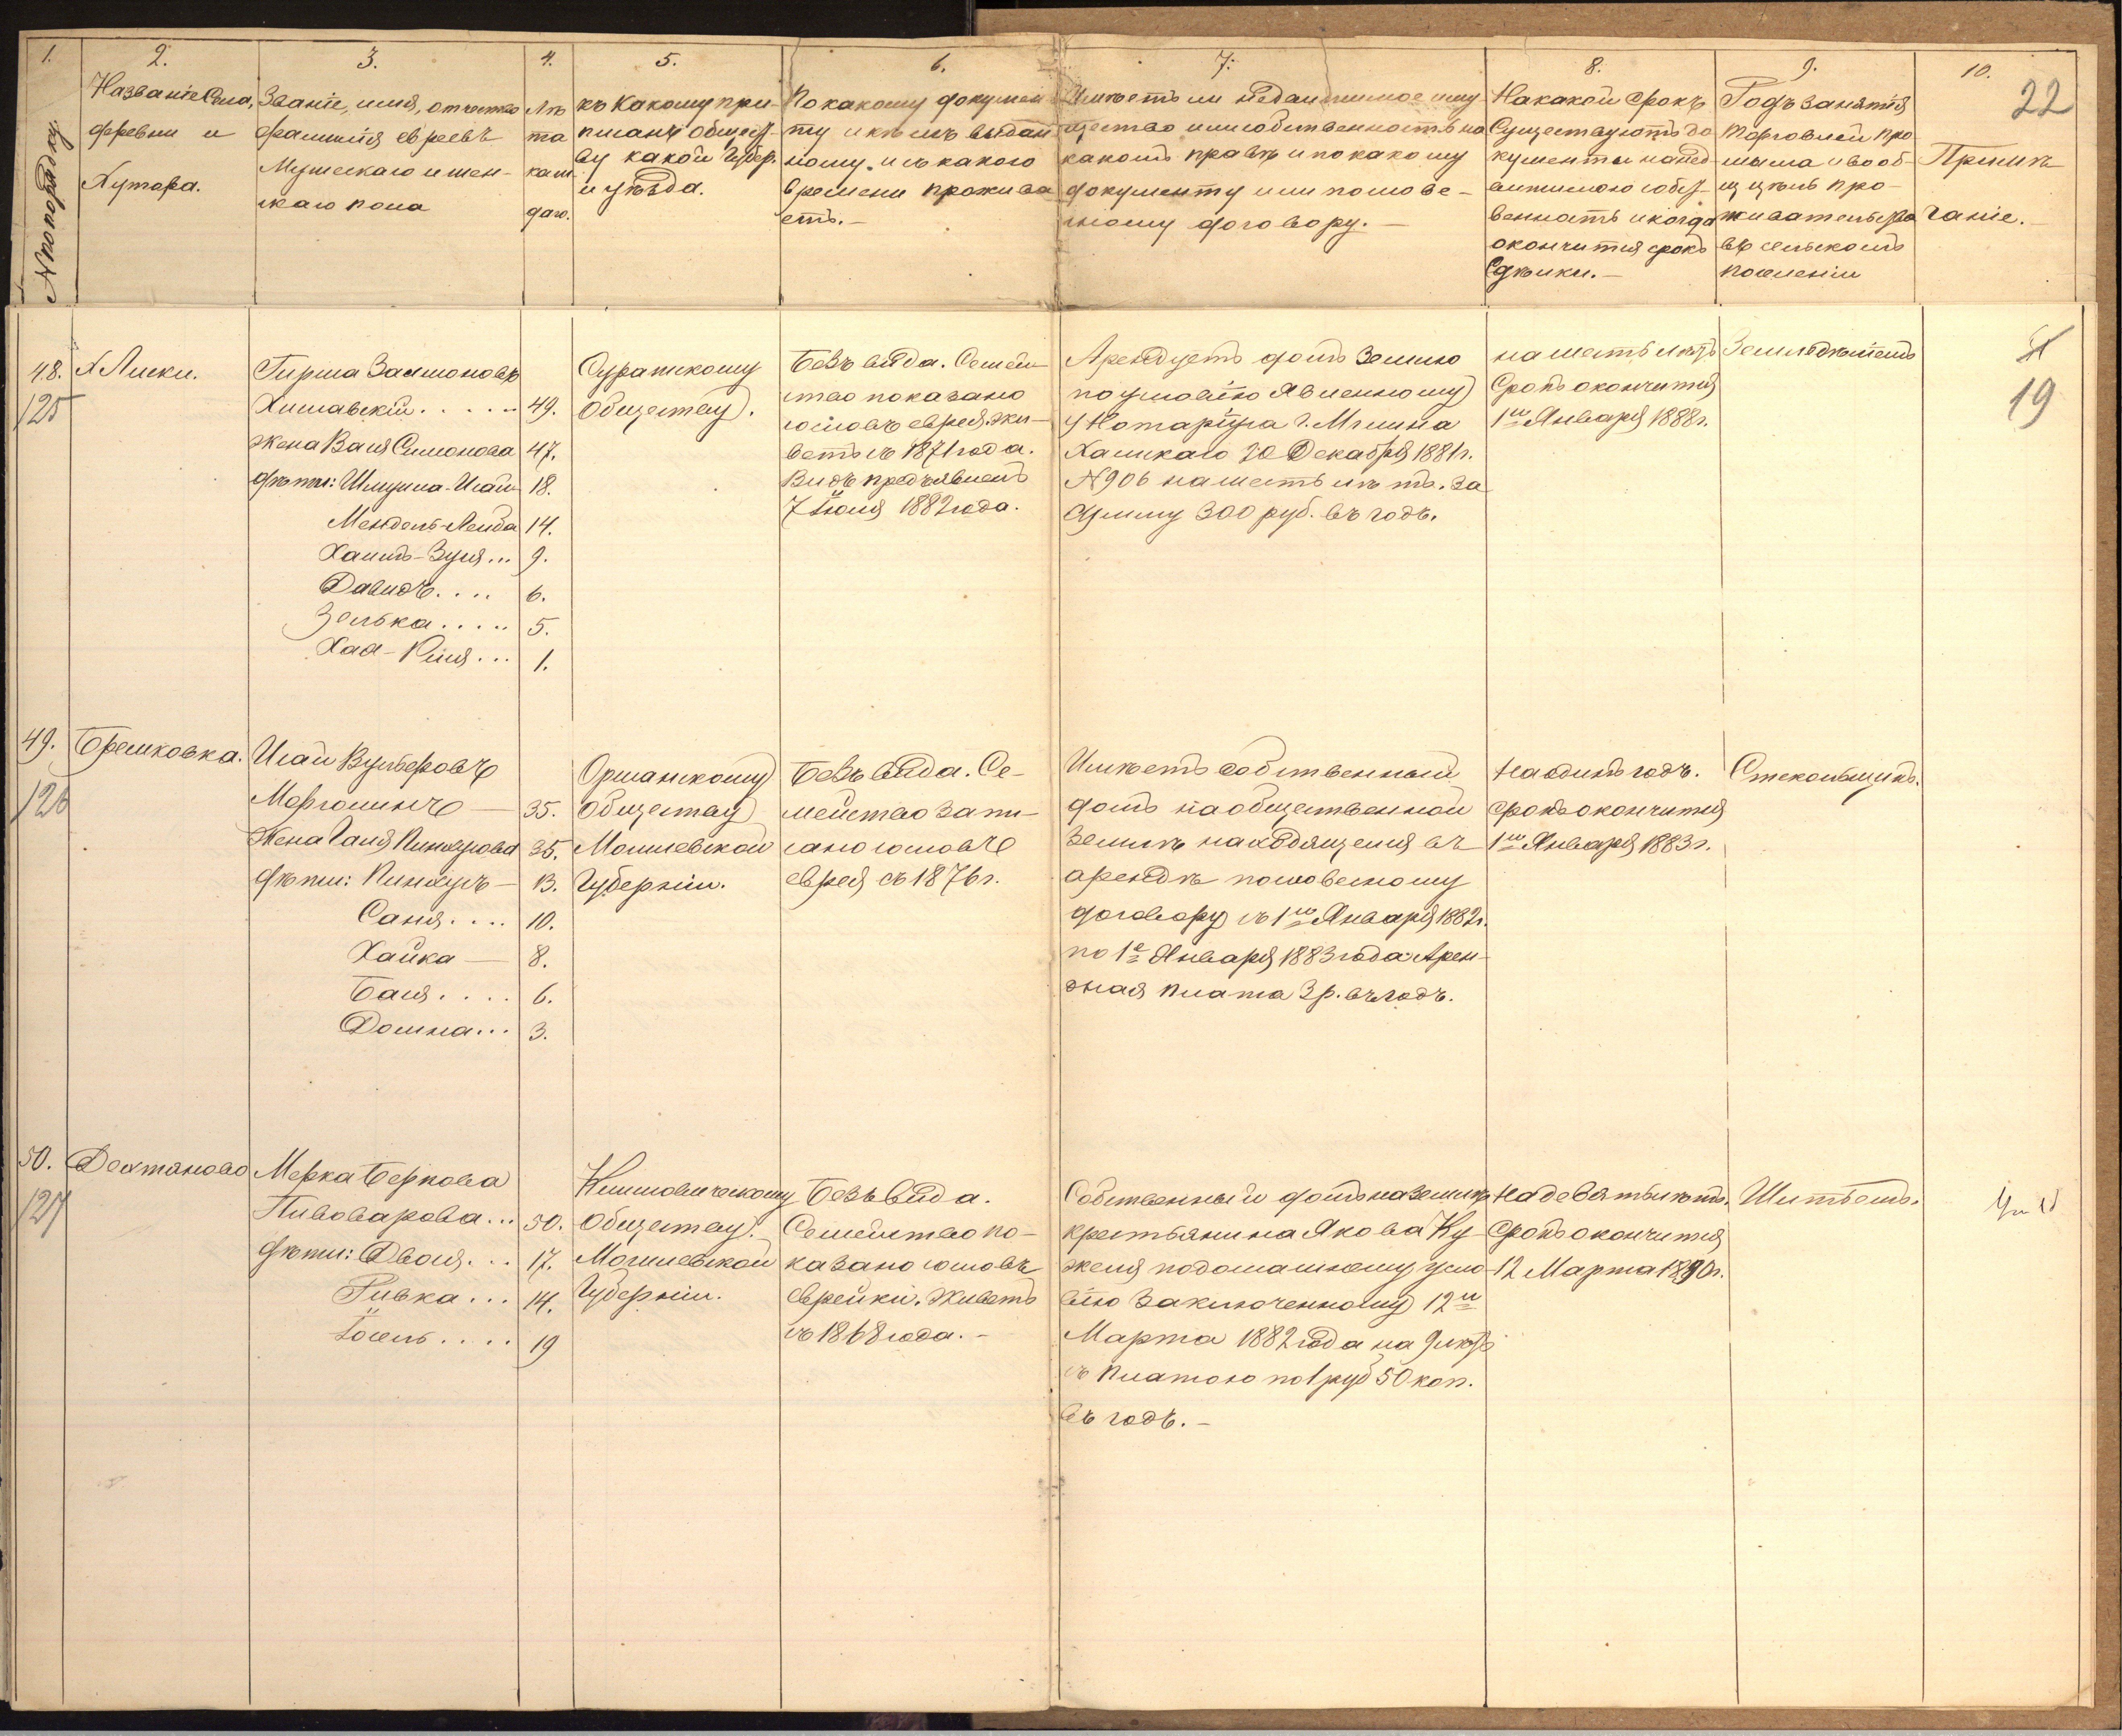 1.
№ по порядку
2.
Названіе Села,
деревни и
Хутора.
3.
Званіе, имя, отчество
фамилія евреевъ
Мужескаго и жен-
скаго пола
4.
Лѣ
та
каж
даго.
5.
къ Какому при-
писанъ Общест-
ву какой Губер.
и уѣзда.
6.
По какому докумен
ту и кѣмъ выдан
ному. и съ какого
времени прожива
етъ.-
7.
Имѣетъ ли недвижимое иму
щество или собственность на
какомъ правѣ и по какому
документу или по слове-
сному договору.-
8.
На какой срокъ
Существуютъ до
кументы на нед-
вижимую собст-
венность и когда
окончится срокъ
Сдѣлки.-
9.
Родъ занятія
торговлей про
мысла и вооб-
ще цѣль про-
живательства
въ сельскомъ
поселеніи
10.
Примѣ
чаніе.
22
48.
125
Х Лиски.
Гирша Залмоновъ
Хиславскій......
жена Вася Симонова
дѣти: Шмуила-Исай
Мендель-Лейба
Хаимъ-Зуся...
Давидъ....
Зелька.....
Хая-Риня...
49.
47.
18.
14.
9.
6.
5.
1.
Суражскому
Обществу.
Безъ вида. Семей
ство показано
словъ еврея. жи-
ветъ съ 1871 года.
Видъ предъявленъ
7 Іюля 1882 года.
Арендуетъ домъ землю
по условію явленному
у Нотаріуса г. Мглина
20 Декабря 1881 г.
№ 906 на шесть лѣтъ. за
сумму 300 руб. въ годъ.
на шесть лѣтъ
Срокъ окончится
1го Января 1888 г.
Земледѣліемъ
19
49.
126
Брешковка.
Исай Вульфовъ
Марголинъ —
Жена Ганя Пинхусова
дѣти: Пинхусъ —
Саня....
Хайка —
Бася....
Домна...
35.
35.
13.
10.
8.
6.
3.
Оршанскому
Обществу
Могилевской
Губерніи.
Безъ вида. Се-
мейство запи-
сано со словъ
еврея съ 1876 г.
Имѣетъ собственный
домъ на общественной
землѣ находящейся въ
арендѣ по словесному
договору съ 1го Января 1882 г.
по 1е Января 1883 года Арен-
дная плата 3 р. въ годъ.
На одинъ годъ.
срокъ окончится
1го Января 1883 г.
Стекольщикъ.
50.
127
Дехтяново
Мерка Беркова
Пивоварова...
дѣти: Двося...
Ривка...
Іосель....
50.
17.
14.
19
Климовическому
Обществу.
Могилевской
Губерніи.
Безъ вида.
Семейство по-
казано со словъ
еврейки. Живетъ
съ 1868 года.-
Собственный домъ на землѣ
крестьянина Якова Ку
желя по домашнему усло
вію заключенному 12го
Марта 1882 года на 9 лѣтъ
съ платою по 1 руб 50 коп.
въ годъ.-
На девять лѣтъ.
Срокъ окончится
12 Марта 1890 г.
Шитьемъ.